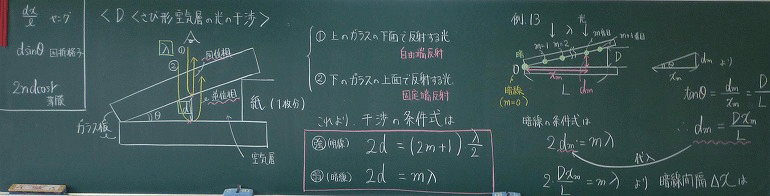 dx/ℓ ヤング
dsinθ 回折格子
2ndcosr 薄膜
<D くさび形空気層の光の干渉>
λ
①
②
同位相
逆位相
d
θ
ガラス板
紙(1枚分)
空気層
① 上のガラスの下面で反射する光
自由端反射
② 下のガラスの上面で反射する光
固定端反射
これより、干渉の条件式は
強(明線) 2d = (2m+1) λ/2
弱(暗線) 2d = mλ
例.13
λ
m番目
m+1番目
m=1
m=2
暗
O
xm
dm
D
L
暗線
(m=0)
dm
xm
より
tanθ = dm/xm = D/L
∴ dm = Dxm/L
暗線の条件式は
2dm = mλ
代入
2・Dxm/L = mλ より 暗線間隔Δxは